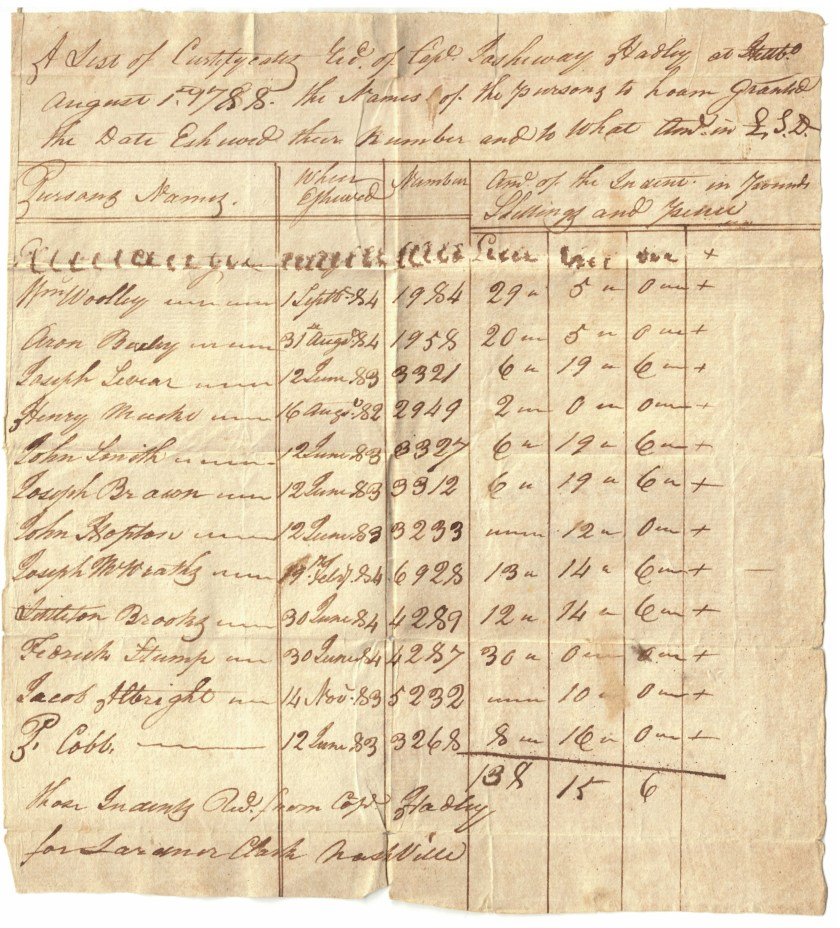 A List of Certifycates Recd. of Capt. Joshuway Hadley at
August 1st 1788. the Names of the pursons to hoom Granted
the Date Eshued their Number and to What Amt. in £.S.D.
Pursons Names. When Eshued Number Amt. of the Indent. in Pounds Shillings and pence
Wm Woolley 1 Septbr. 84 1984 29 5 0 +
Aron Baxley 31st Augt. 84 1958 20 5 0 +
Joseph Leviar 12 June 83 3321 6 19 6 +
Henry Muske 16 Augt. 82 2949 2 0 0 +
John Smith 12 June 83 3327 6 19 6 +
Joseph Brawn 12 June 83 3312 6 19 6 +
John Hopton 12 June 83 3233 12 0 +
Joseph McKraths 19 Feby. 84 6928 13 14 6 +
Littleton Brooks 30 June 84 4289 12 14 6 +
Fedrick Stump 30 June 84 4287 30 0 0 +
Jacob Albright 14 Novr. 83 5232 10 0 +
P. Cobb. 12 June 83 3268 8 16 0 +
138 15 6
those Indents Recd. from Capt. Hadley
for Lardner Clark NashVille